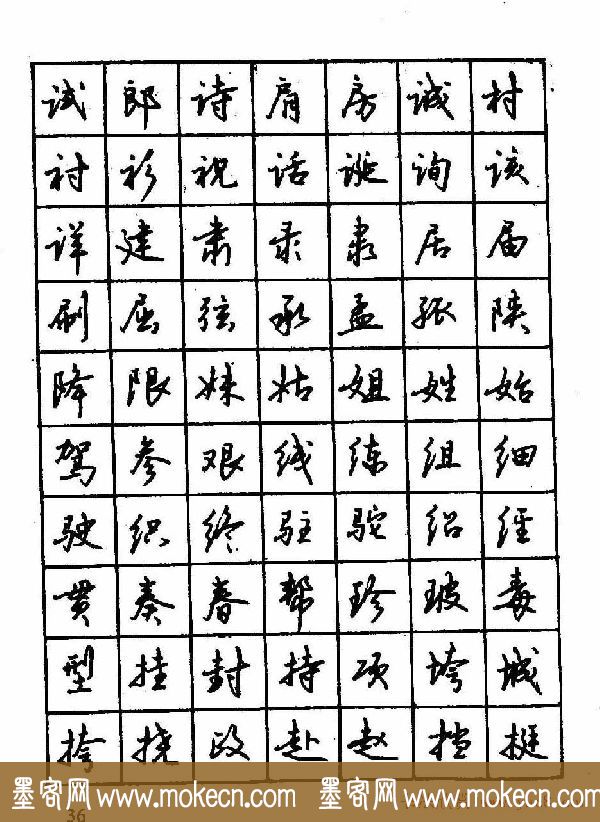 试郎诗肩房诚村
衬衫视话诞询该
详建肃录隶居届
刷屈弦承孟孤陕
降限妹姑姐姓始
驾参艰线练组细
驶织终驻驼绍经
贯奏春帮珍玻毒
型挂封持项垮城
挎挠政赴赵挡挺
墨客网 www.mokecn.com 墨客网 www.mokecn.com
36